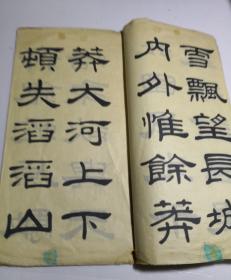 雪飄望長城
內外惟餘莽
莽大河上下
頓失滔滔山